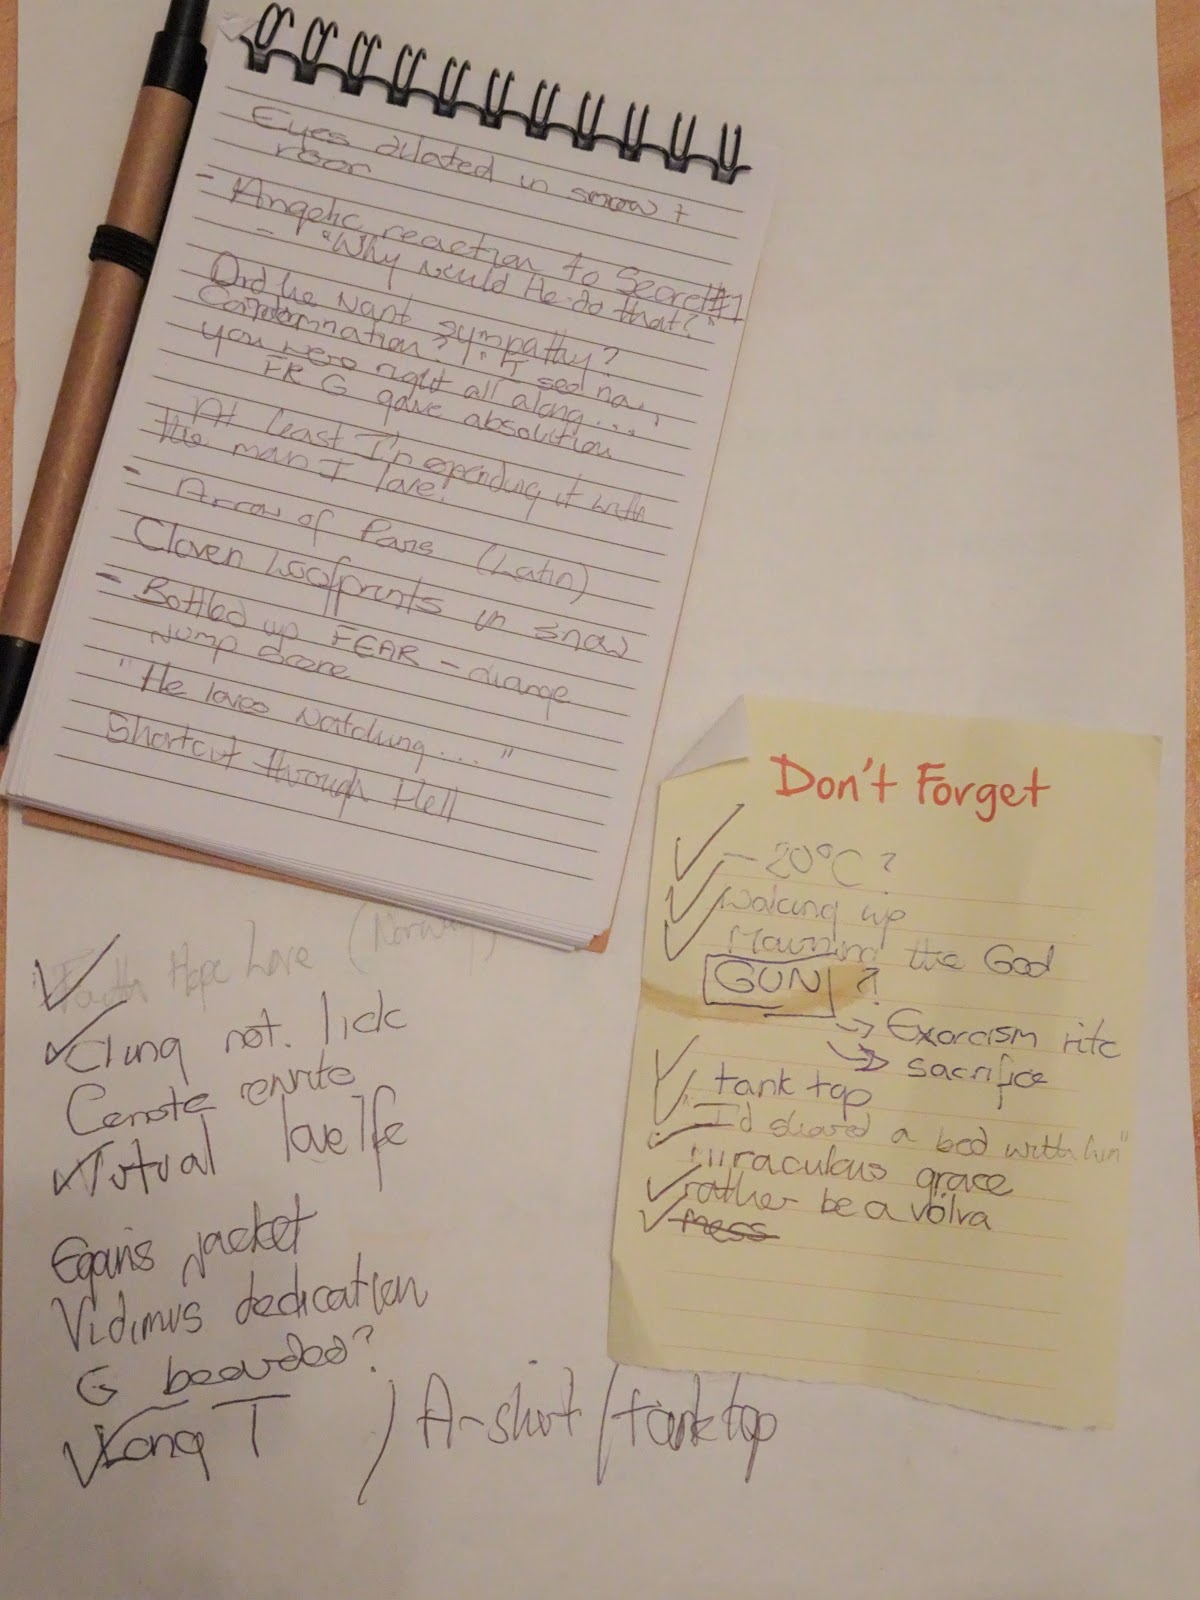 Eyes dilated in snow +
room
- Angelic reaction to Secret #1
- "Why would He do that?"
Did he want sympathy?
Condemnation? "I see now,
you were right all along..."
FR G gave absolution
At least I'm spending it with
the man I love.
- Arrow of Paris (Latin)
Cloven hoofprints in snow
- Bottled up FEAR - change
Jump Scare
"He loves watching..."
Shortcut through Hell
Faith Hope Love (Norway)
Clung not. lick
Cenote rewrite
Mutual love life
Egan's jacket
Vidimus dedication
G bearded?
Long T / A-shirt / tank top
Don't Forget
-20°C?
Waking up
Mourning the God
GUN?
→ Exorcism rite
→ sacrifice
tank top
"I'd shared a bed with him"
Miraculous grace
rather be a völva
mess